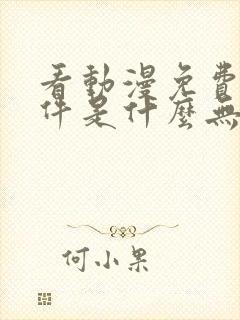 看動漫免費
件是什麼無
何小果